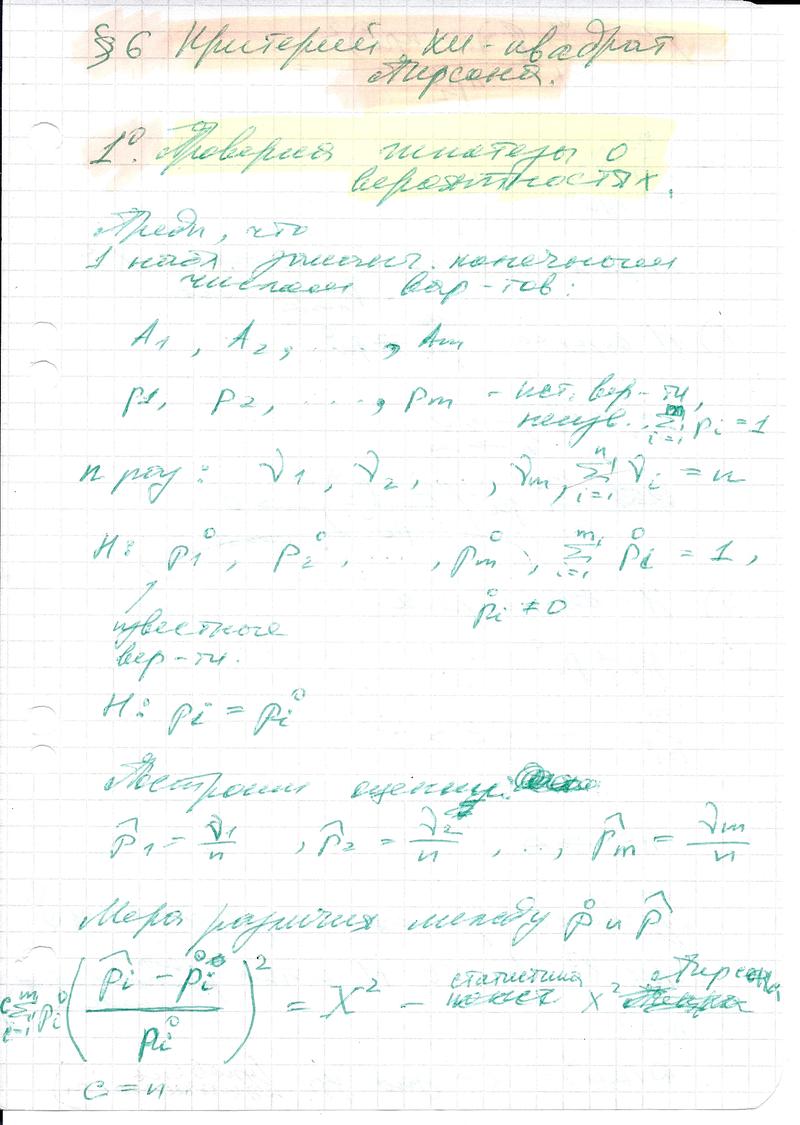 §6 Критерий хи-квадрат
Пирсона.
1°. Проверка гипотезы о
вероятностях.
Предп, что
1 набл законч. конечным
числом вар-тов:
A₁, A₂, ..., Aₘ
p₁, p₂, ..., pₘ - ист. вер-ти,
неизв. ∑ᵢ₌₁ᵐ pᵢ = 1
n раз: ν₁, ν₂, ..., νₘ, ∑ᵢ₌₁ⁿ νᵢ = n
H: p₁⁰, p₂⁰, ..., pₘ⁰, ∑ᵢ₌₁ᵐ pᵢ⁰ = 1,
pᵢ⁰ ≠ 0
известные
вер-ти.
H: pᵢ = pᵢ⁰
Построим оценку:
p̂₁ = ν₁/n, p̂₂ = ν₂/n, ..., p̂ₘ = νₘ/n
Мера различия между p⁰ и p̂
c ∑ᵢ₌₁ᵐ pᵢ⁰ ((p̂ᵢ - pᵢ⁰)/pᵢ⁰)² = X² - статистика X² Пирсона
c = n